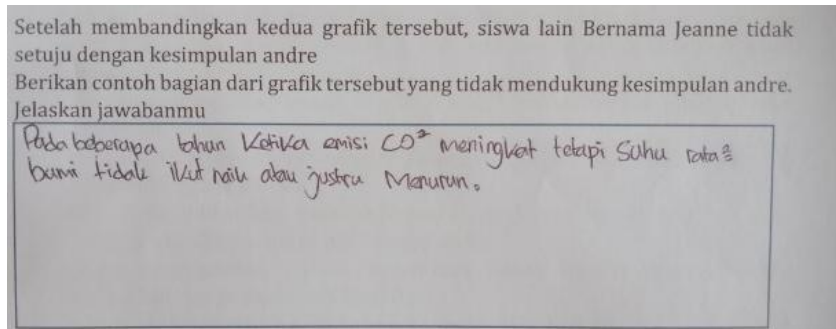 Setelah membandingkan kedua grafik tersebut, siswa lain Bernama Jeanne tidak
setuju dengan kesimpulan andre
Berikan contoh bagian dari grafik tersebut yang tidak mendukung kesimpulan andre.
Jelaskan jawabanmu
Pada beberapa tahun Ketika emisi CO² meningkat tetapi Suhu rata²
bumi tidak ikut naik atau justru Menurun.